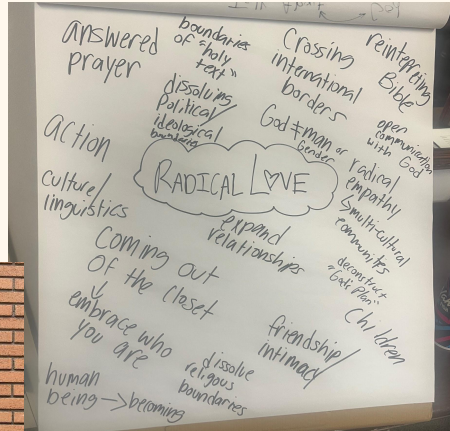 answered
prayer
boundaries
of "holy
text"
Crossing
international
borders
reintepreting
Bible
dissolving
Political/
ideological
God ≠ man or
Gender
open
communication
with God
action
RADICAL LOVE
radical
empathy
↳multi-cultural
communities
culture/
linguistics
expand
relationships
deconstruct
"God's Plan"
Coming out
Of the Closet
↓
embrace who
you are
Children
friendship/
intimacy
dissolve
religous
boundaries
human
being → becoming